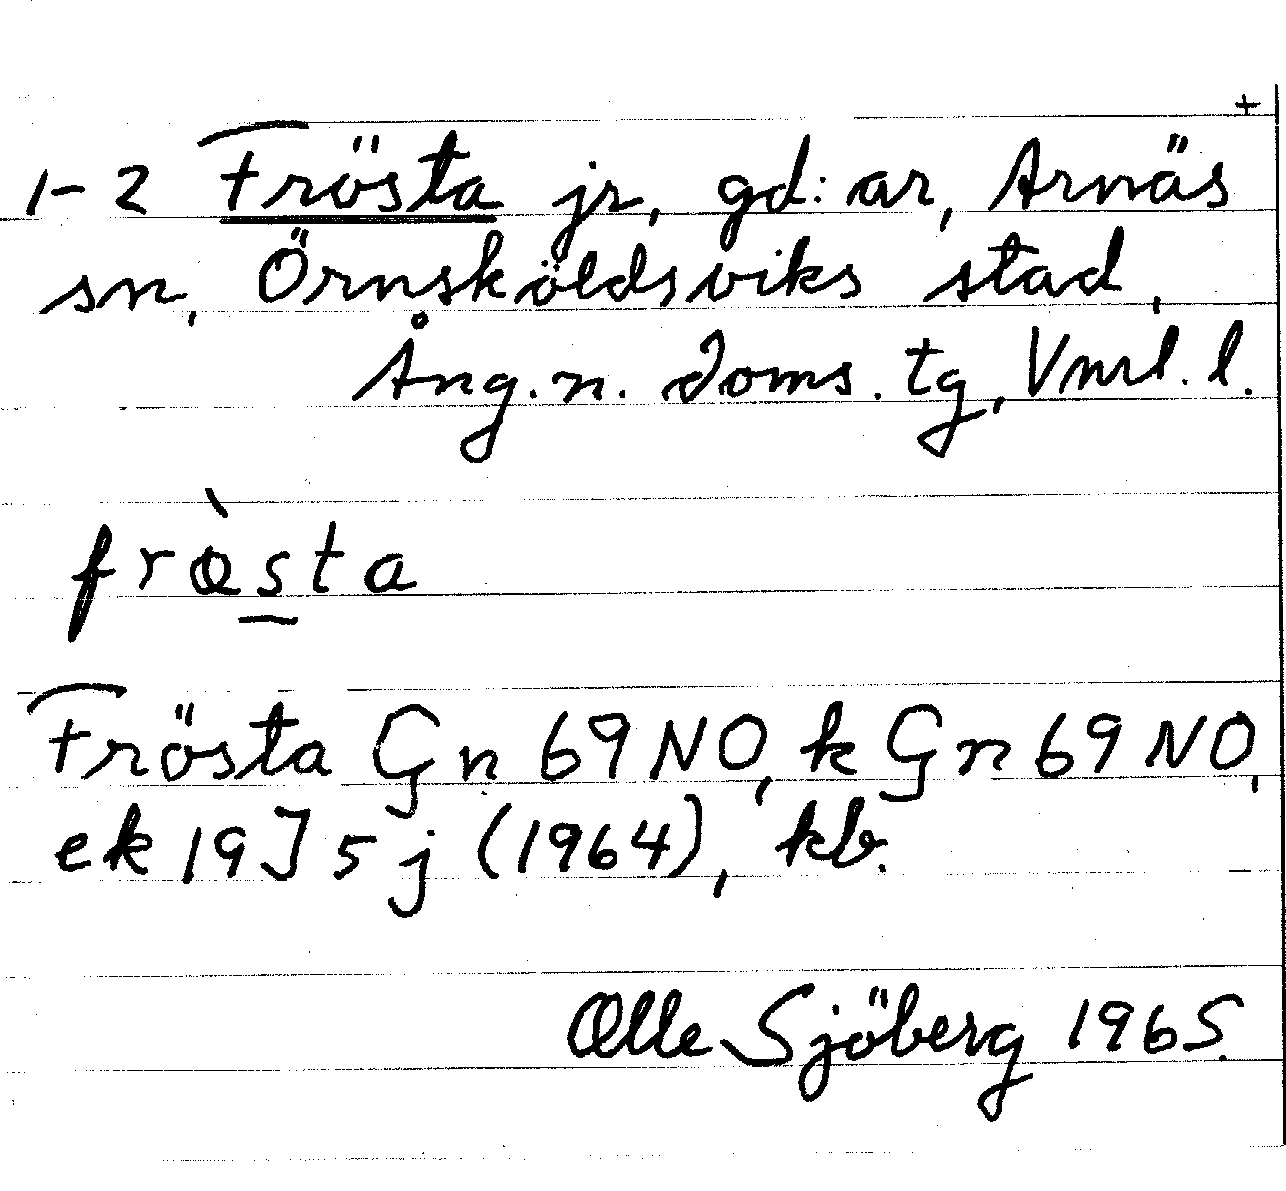 +
1-2 Frösta jr, gd:ar, Arnäs
sn, Örnsköldsviks stad,
Ång. n. doms. tg, Vnrl. l.
frœ̀s̲ta
Frösta Gn 69 NO, k Gn 69 NO,
ek 19J 5j (1964), kb.
Olle Sjöberg 1965.